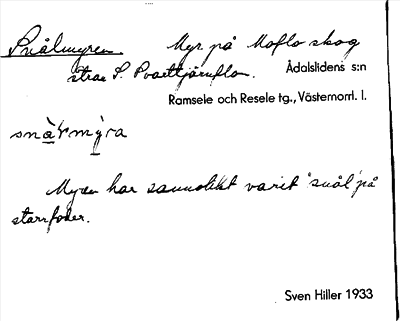 Snålmyren. Myr på Moflo skog
strax S. Svarttjärnflon. Ådalslidens s:n
Ramsele och Resele tg., Västernorrl. l.
snålmýra
Myren har sannolikt varit "snål" på
starrfoder.
Sven Hiller 1933